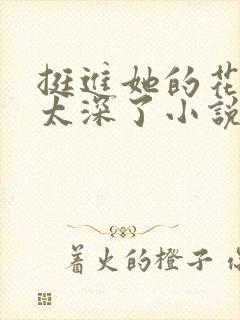 挺进她的花
太深了小說
著火的橙子